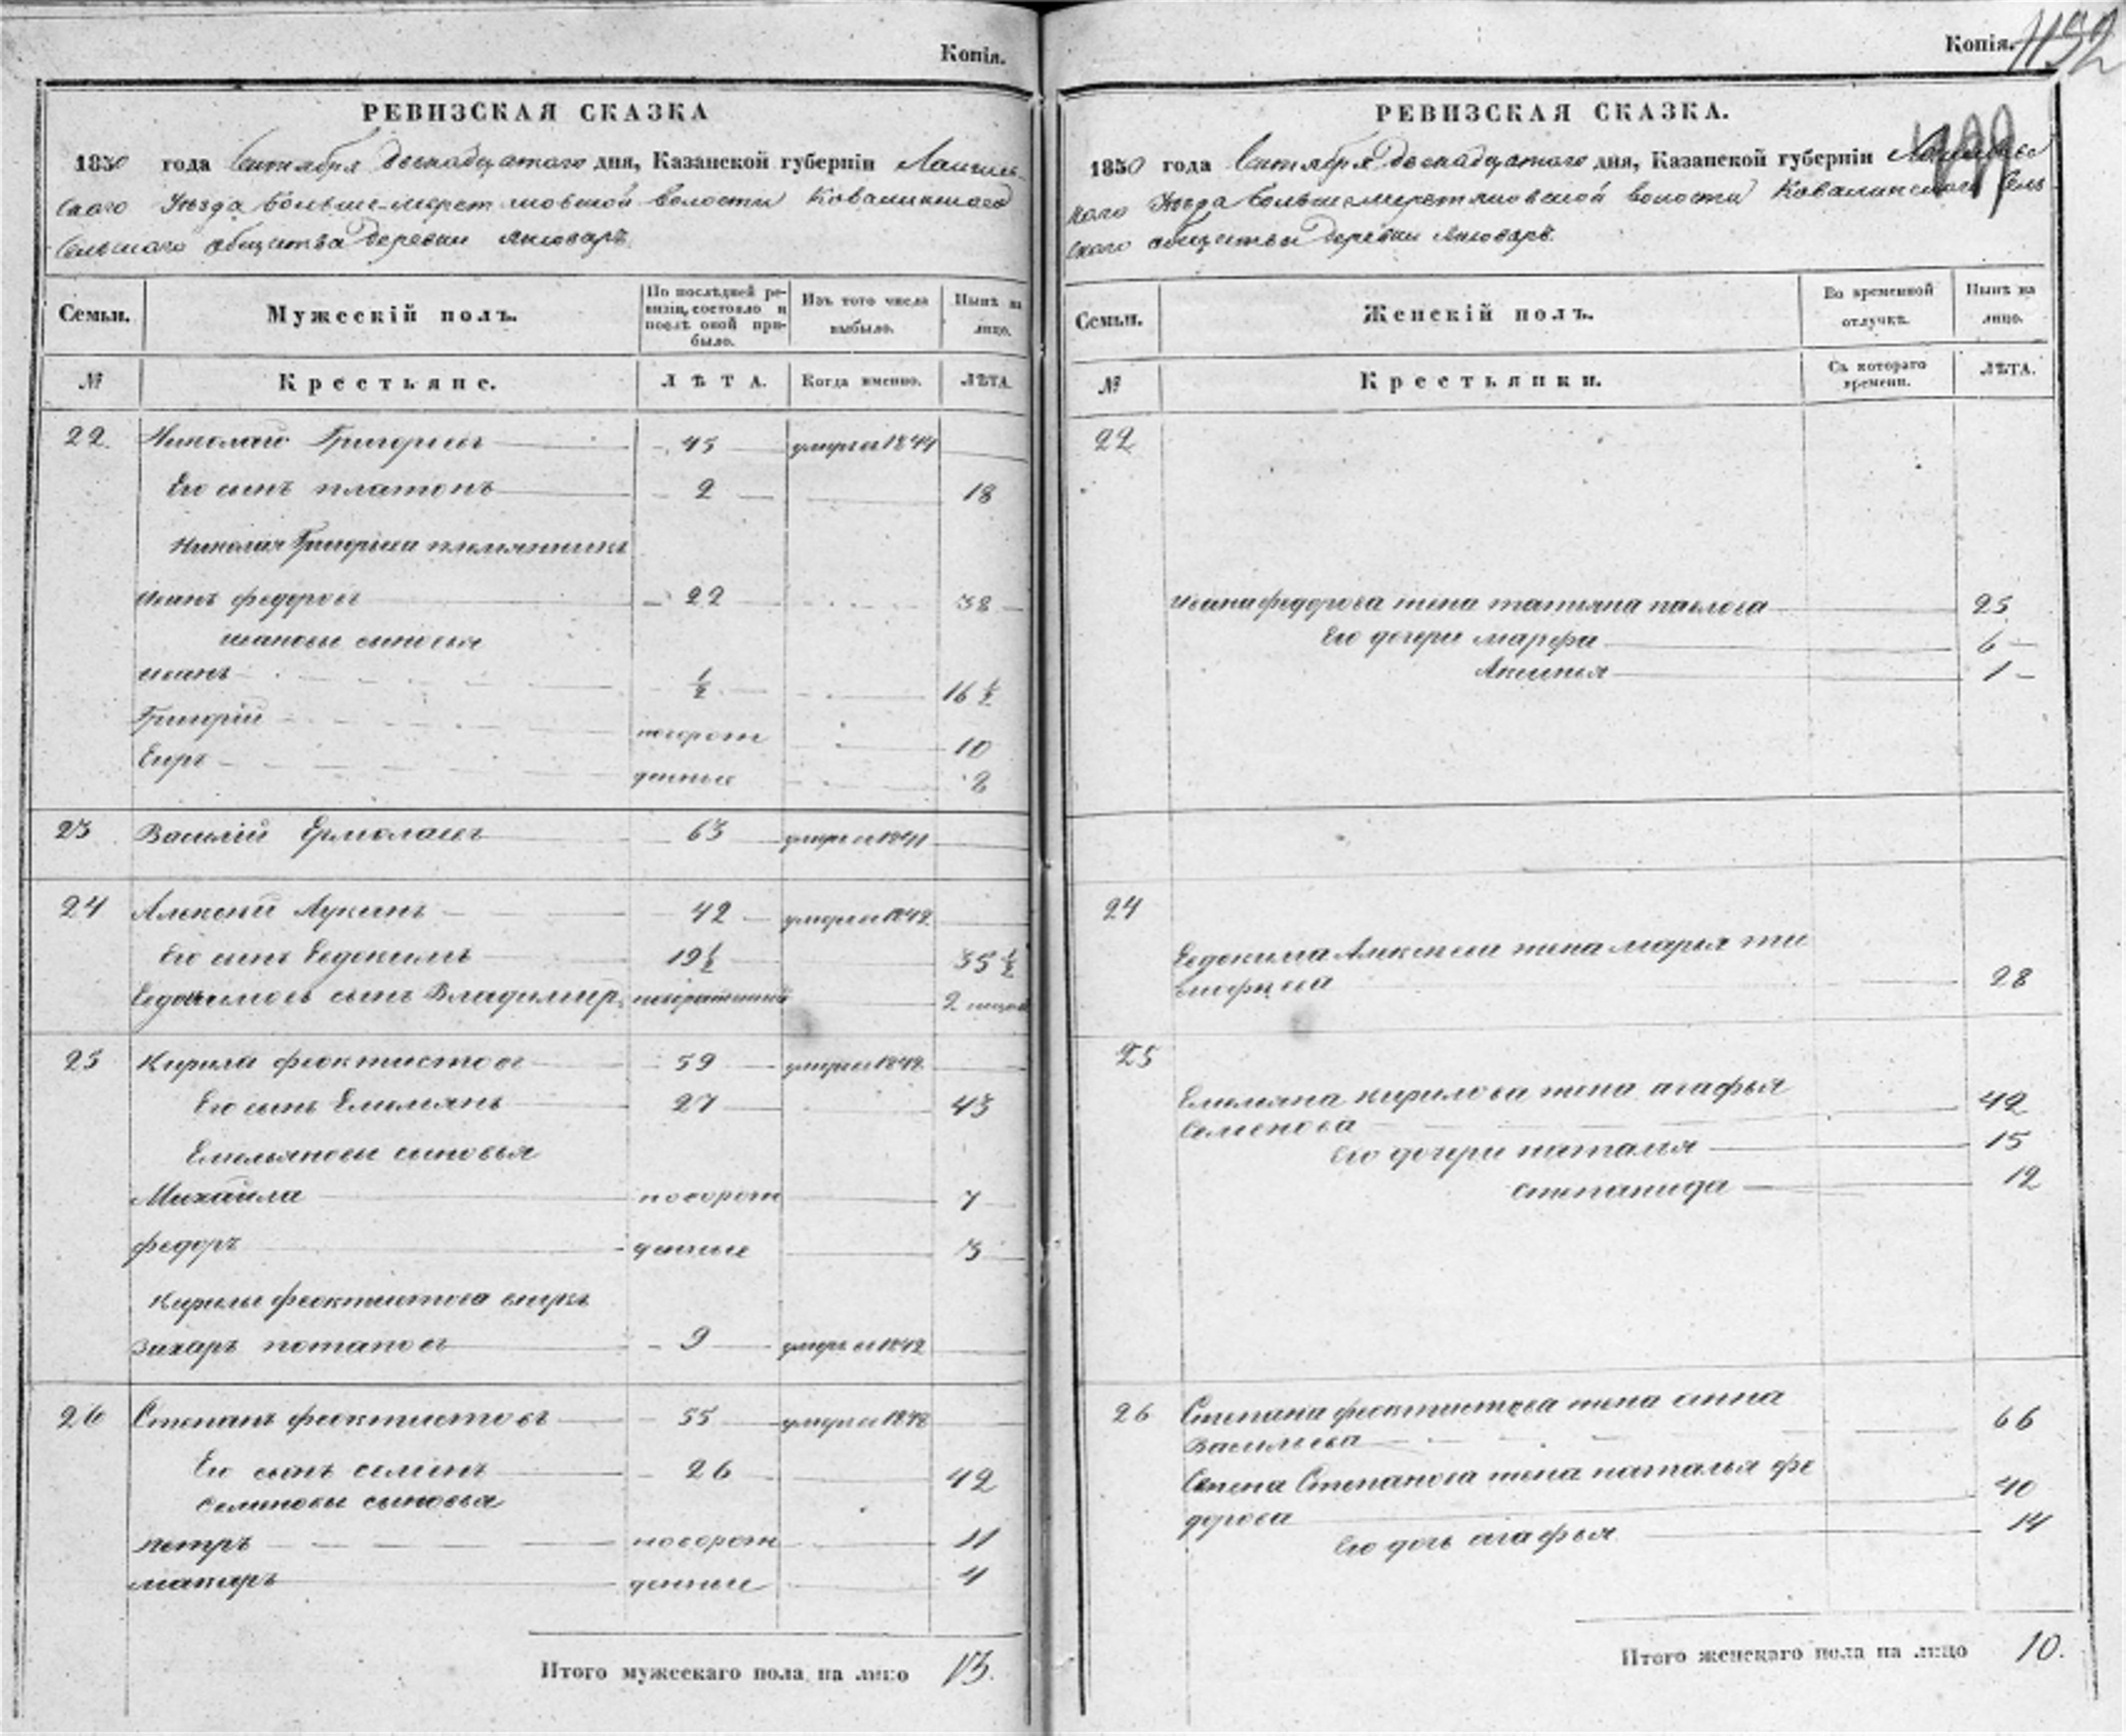 Копія.
РЕВИЗСКАЯ СКАЗКА
1850 года Сентября двенадцатаго дня, Казанской губерніи Лаишев-
скаго Уѣзда волости Ковалинскаго
Сельскаго общества Деревни Янсоваръ
Семьи. Мужескій полъ. По послѣдней ревизіи, состояло и послѣ оной прибыло. Изъ того числа выбыло. Нынѣ на лицо.
№ Крестьяне. ЛѢТА. Когда именно. ЛѢТА.
22. Николай Григорьевъ 45 умеръ в 1844
Его сынъ платонъ 2 18
Николая Григорьева племянникъ
Иванъ федоровъ 22 38
ивановы сыновья
иванъ ½ 16 ½
Григорій новорож 10
Егоръ денные 8
23 Василій Ермолаевъ 63 умеръ в 1841
24 Алексѣй Лукинъ 42 умеръ в 1842
Его сынъ Евдокимъ 19½ 35 ½
Евдокимовъ сынъ Владимир новорожденный 2
25 Кирила феоктистовъ 59 умеръ в 1842
Его сынъ Емельянъ 27 43
Емельяновы сыновья
Михайла новорож 7
федоръ денные 3
Кирилы феоктистова внукъ
захаръ потаповъ 9 умеръ в 1842
26 Степанъ феоктистовъ 55 умеръ в 1848
Его сынъ семенъ 26 42
семеновы сыновья
петръ новорож 11
макаръ денные 4
Итого мужескаго пола на лицо 13.
Копія. 1192
РЕВИЗСКАЯ СКАЗКА.
1850 года Сентября двенадцатаго дня, Казанской губерніи
скаго Уѣзда волости Ковалинскаго Сель
скаго общества Деревни Янсоваръ
Семьи. Женскій полъ. Во временной отлучкѣ. Нынѣ на лицо.
№ Крестьянки. Съ котораго времени. ЛѢТА.
22
ивана федорова жена татьяна павлова 25
Его дочери марфа 6
Аксинья 1
24
Евдокима Алексѣева жена марья ти
28
25
Емельяна кирилова жена агафья 42
Семенова
Его дочери наталья 15
степанида 12
26 Степана феоктистова жена анна 66
Васильева
Семена Степанова жена наталья фе 40
дорова
Его дочь агафья 14
Итого женскаго пола на лицо 10.